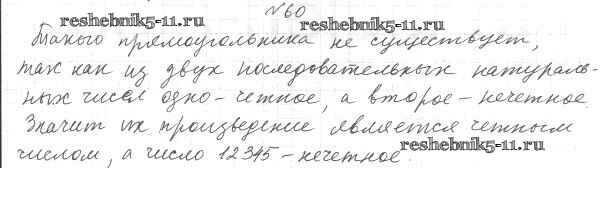 №60
reshebnik5-11.ru reshebnik5-11.ru
Такого прямоугольника не существует,
так как из двух последовательных натураль-
ных чисел одно - четное, а второе - нечетное.
Значит их произведение является четным
числом, а число 12345 - нечетное.
reshebnik5-11.ru